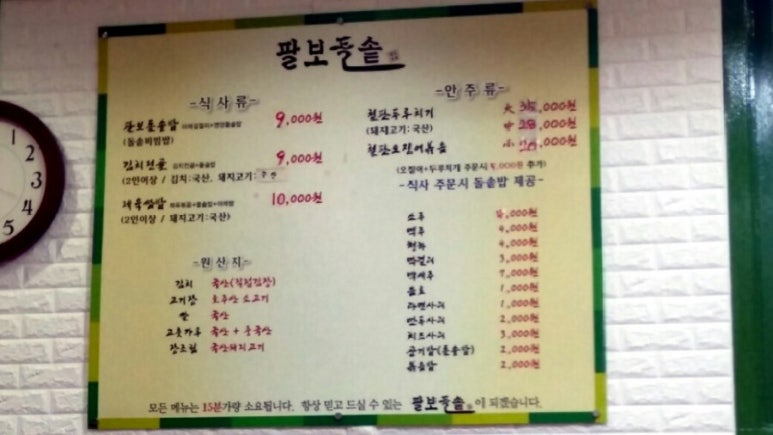 팔보돌솥
-식사류-
팔보돌솥밥 야채겉절이+영양돌솥밥 9,000원
(돌솥비빔밥)
김치전골 김치전골+돌솥밥 9,000원
(2인이상 / 김치:국산, 돼지고기:국산
제육쌈밥 제육볶음+돌솥밥+야채쌈 10,000원
(2인이상 / 돼지고기:국산)
-원산지-
김치 국산(직접김장)
고기장 호주산 소고기
쌀 국산
고춧가루 국산 + 중국산
장조림 국산돼지고기
-안주류-
철판두루치기 大 35,000원
(돼지고기: 국산) 中
철판오징어볶음 小
(오징어+두루치기 주문시 5,000원 추가)
-식사 주문시 돌솥밥 제공-
소주 4,000원
맥주 4,000원
청하 4,000원
막걸리 3,000원
백세주 7,000원
음료 1,000원
라면사리 1,000원
만두사리 2,000원
치즈사리 3,000원
공기밥(돌솥밥) 2,000원
볶음밥 2,000원
모든 메뉴는 15분가량 소요됩니다. 항상 믿고 드실 수 있는 팔보돌솥이 되겠습니다.
1
2
3
4
5